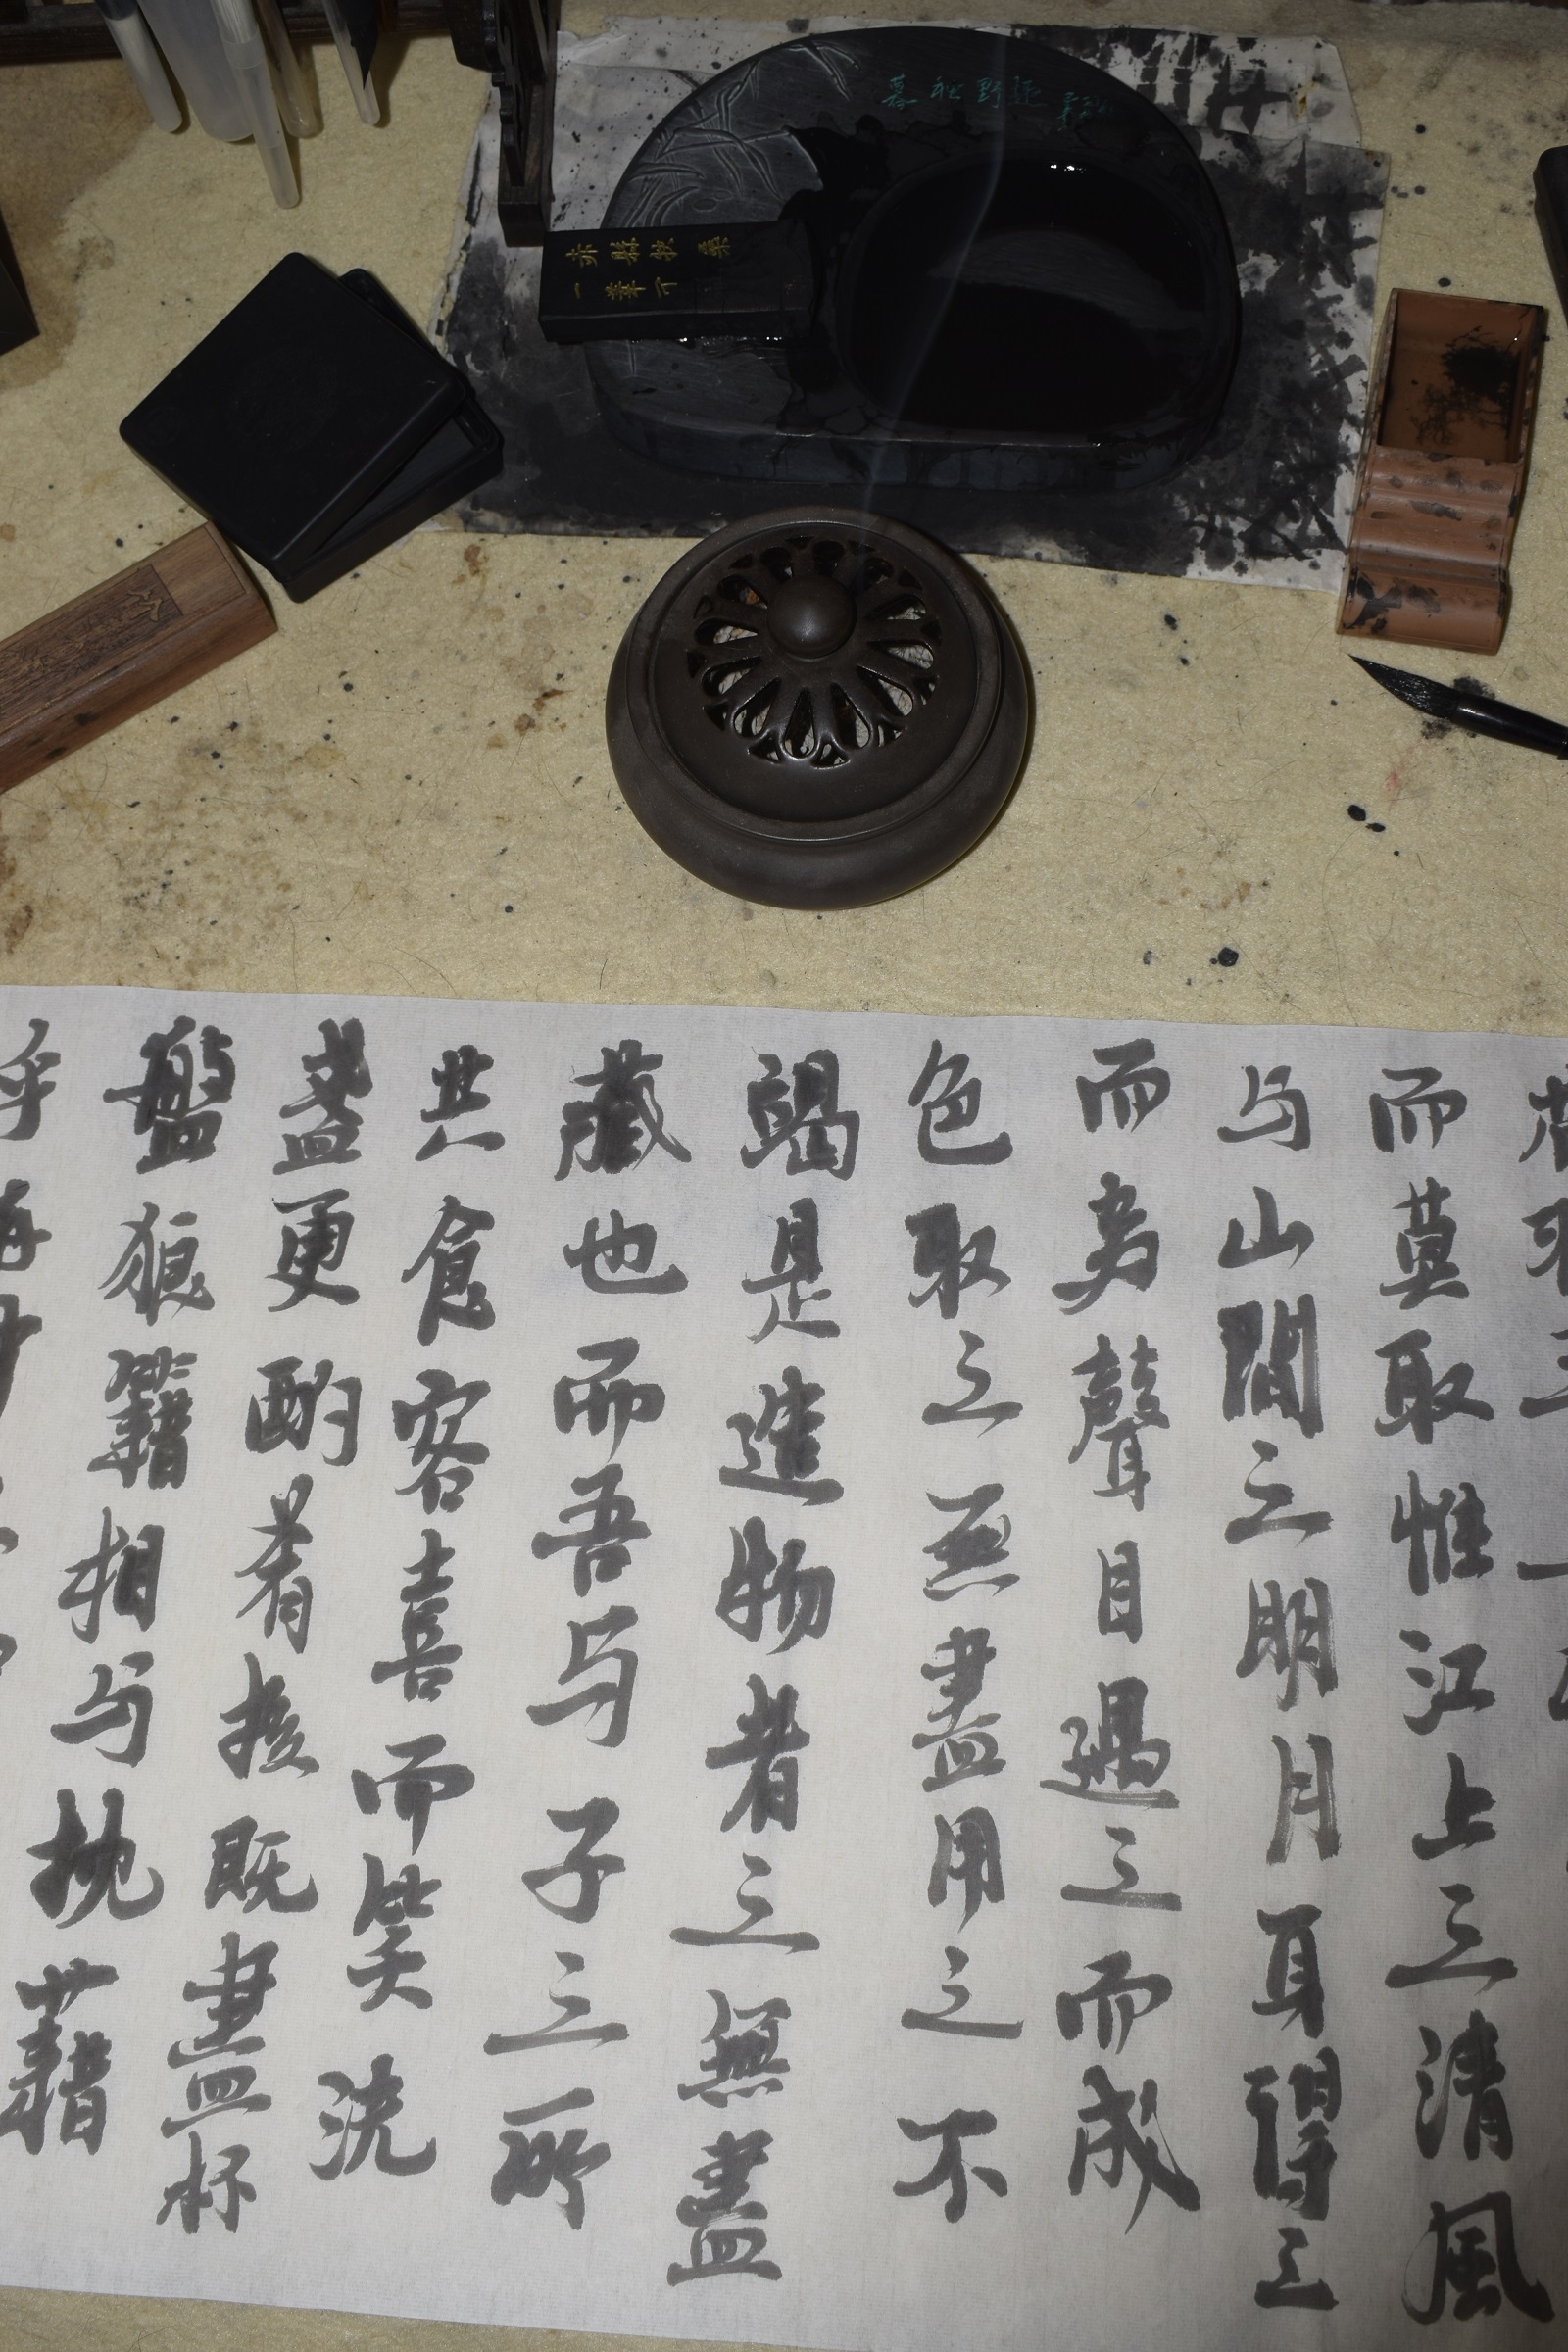 暮秋野趣
赤縣扶桑
一葦可
而莫取惟江上之清風
与山間之明月耳得之
而為聲目遇之而成
色取之無盡用之不
竭是造物者之無盡
藏也而吾与子之所
共食客喜而笑洗
盞更酌肴核既盡杯
盤狼籍相与枕藉
乎